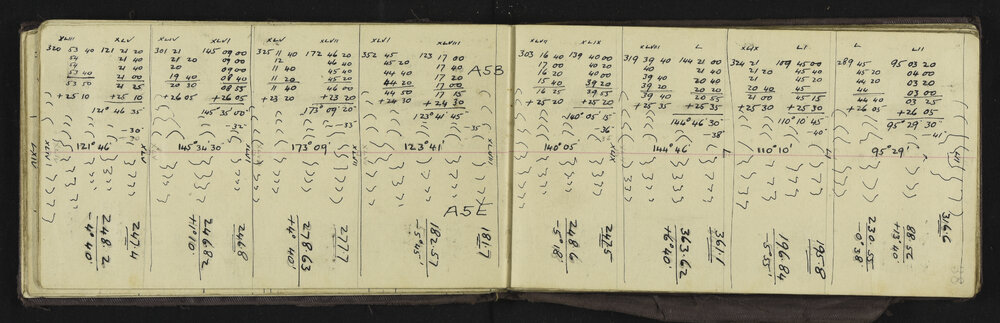 XLIII XLV
320 53 40 121 21 20
54 21 40
54 21 40
53 40 21 00
53 50 21 25
+25 10 +25 10
121° 46' 35
-30"
121° 46'
XLIV XLVI
301 21 145 09 00
21 20 09 00
20 09 00
19 40 08 40
20 30 08 55
+26 05 +26 05
145° 35' 00
-32"
145° 34' 30"
XLV XLVII
325 11 40 172 46 20
12 46
11 40 45 40
11 20 45 20
11 40 46 00
+23 20 +23 20
173° 09' 20"
-33"
173° 09'
XLVI XLVIII
352 45 123 17 00
45 20 17 00
44 40 17 40
44 20 17 00
44 50 17 15
+24 30 +24 30
123° 41' 45
-35"
123° 41'
A5B
A5E
XLVII XLIX
303 16 40 139 40 00
17 00 40 20
16 20 40 00
15 40 39 20
16 25 39 55
+25 20 +25 20
140° 05' 15"
-36"
140° 05'
XLVIII L
319 39 40 144 21 00
40 21 40
39 40 21 00
39 20 20 20
39 40 20 55
+25 35 +25 35
144° 46' 30
-38"
144° 46'
XLIX LI
324 21 109 45 00
21 20 45 00
20 45 40
20 40 45
+25 30 +25 30
110° 10' 45
-40"
110° 10'
L LII
289 45 95 03 20
45 20 04 00
44 20 03 20
44 03 00
44 40 03 25
+26 05 +26 05
95° 29' 30
-41"
95° 29'
247.4
248.2
-4° 40'
246.8
246.82
+1° 10'
277.7
278.63
+4° 40'
181.7
182.57
-5° 45'
247.5
248.6
-5° 18'
361.1
363.62
+6° 40'
195.8
196.84
-5° 55'
230.55
-0° 38'
316.6
88.52
+13° 40